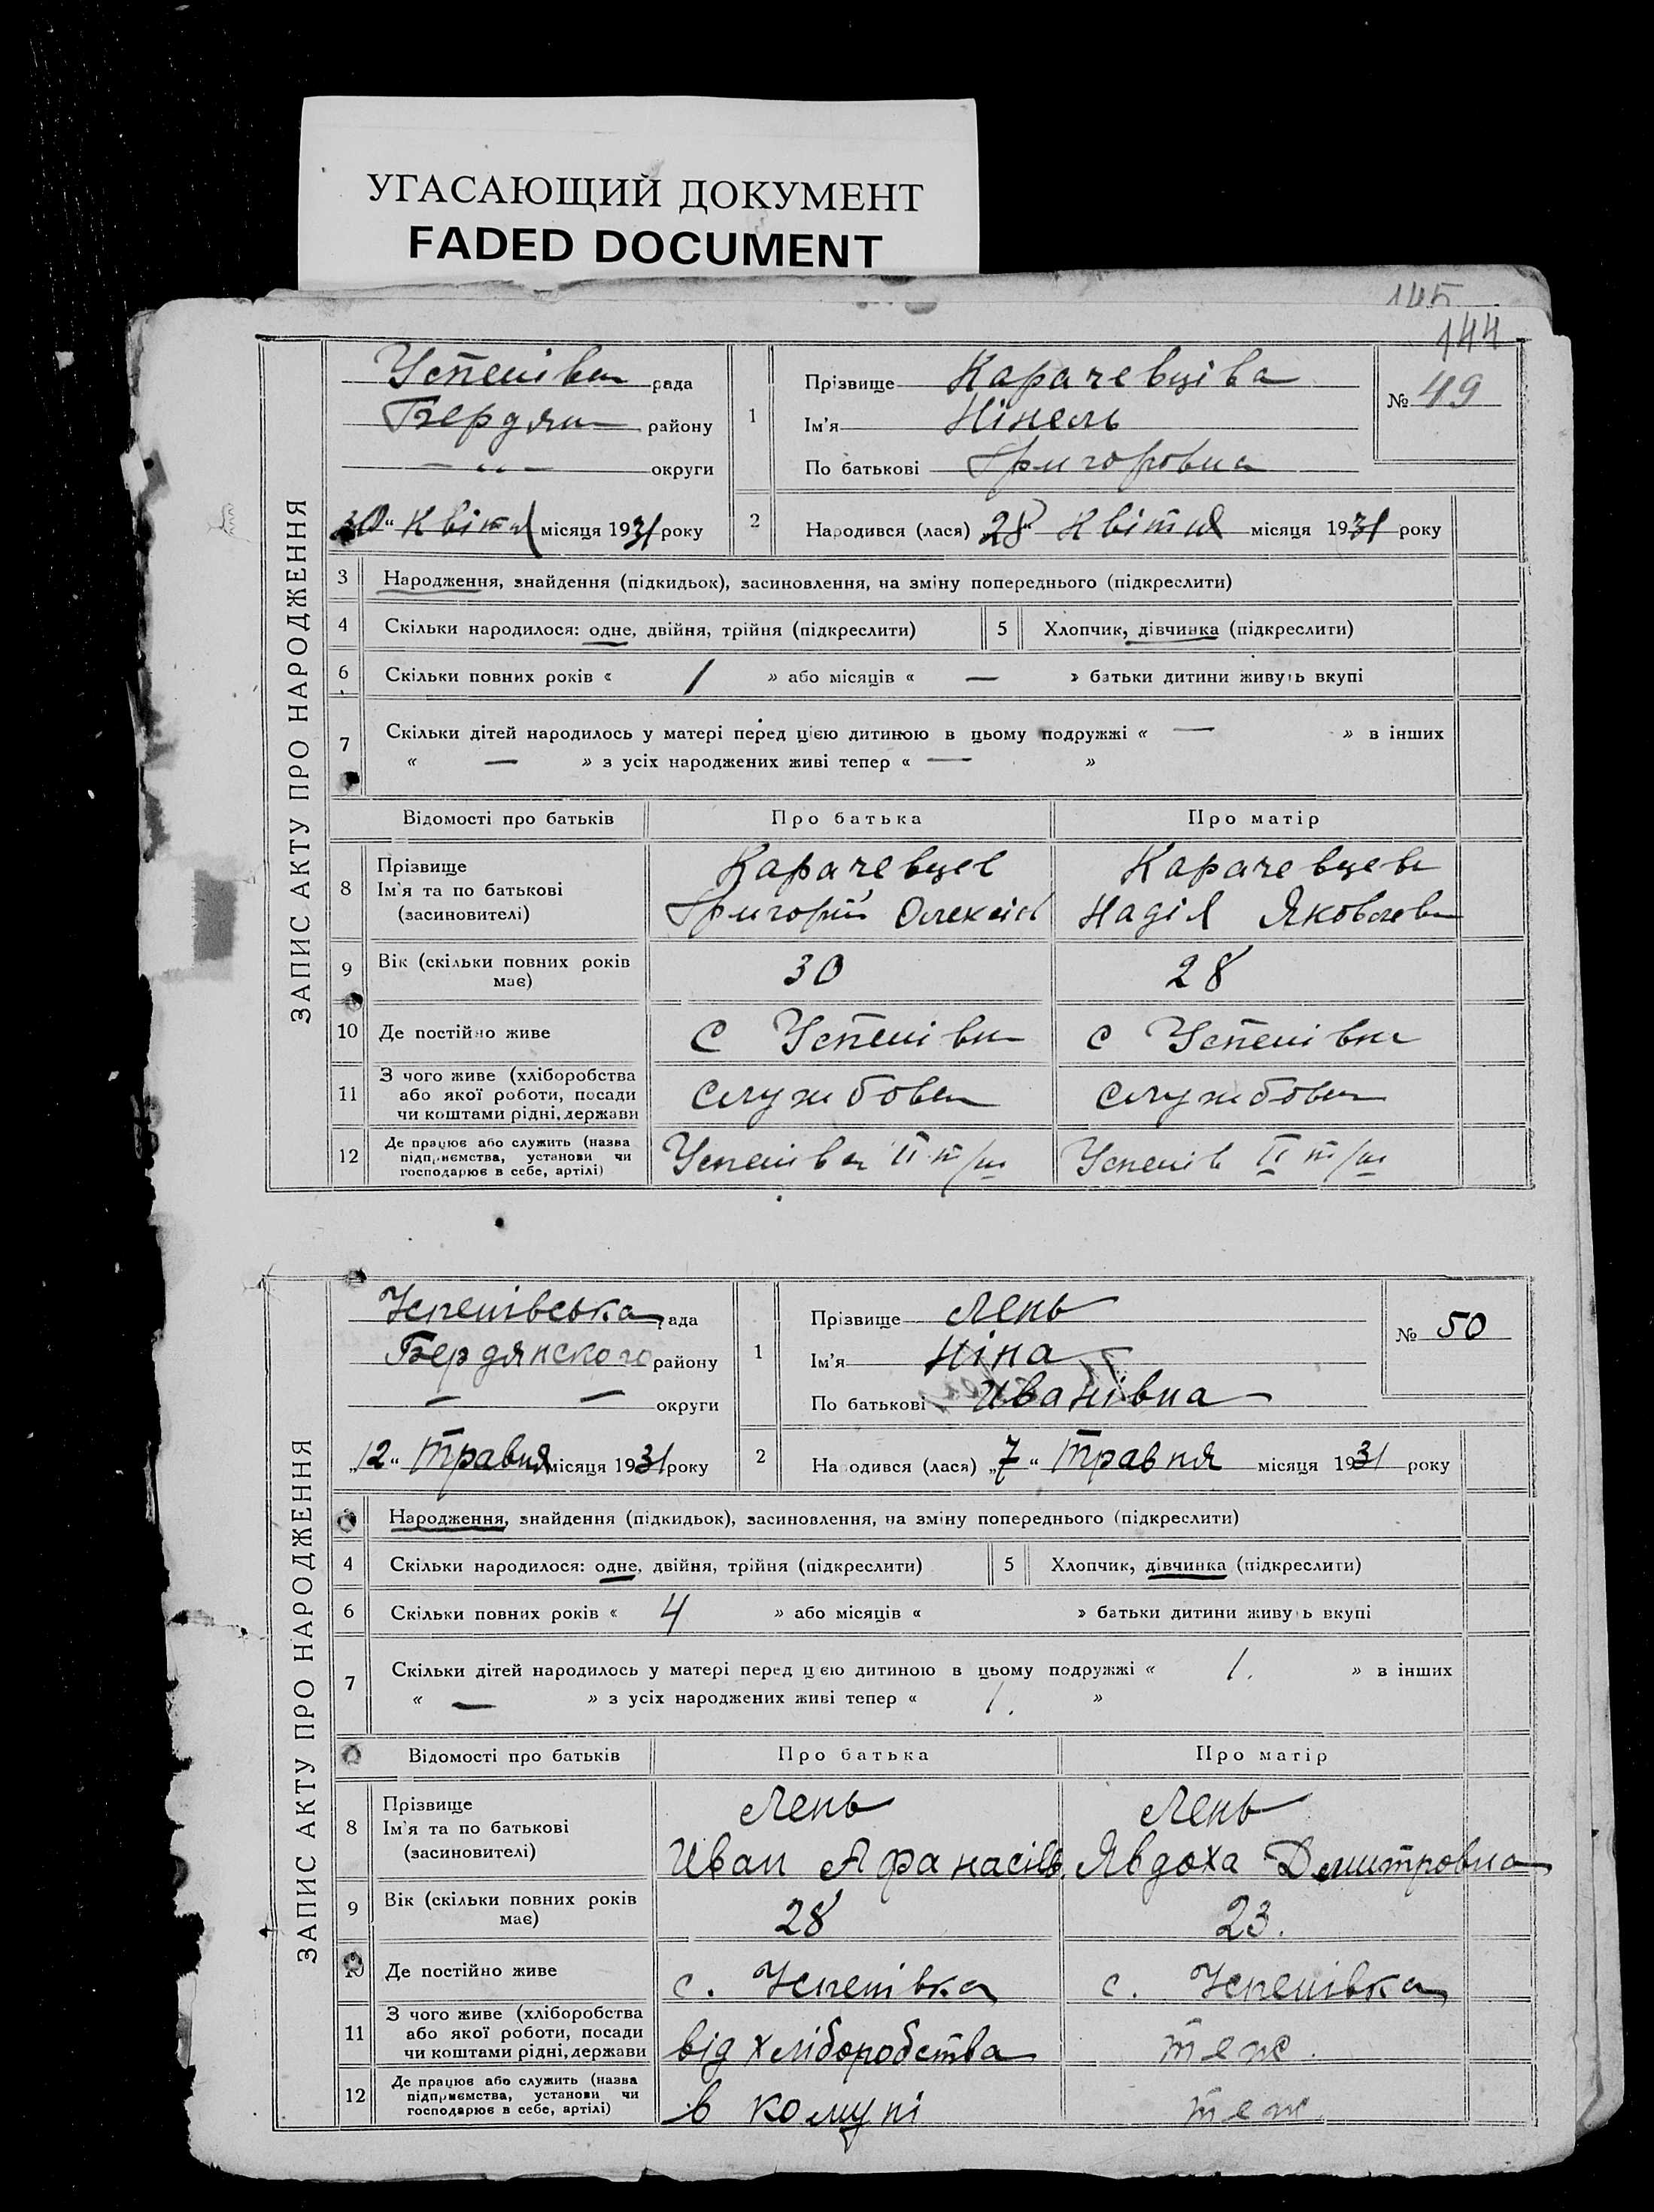 УГАСАЮЩИЙ ДОКУМЕНТ
FADED DOCUMENT
145
144
ЗАПИС АКТУ ПРО НАРОДЖЕННЯ
Успенівка рада
Бердян району
— „ — округи
30 “ Квітня місяця 1931 року
1
Прізвище Карачевціва
Ім'я Нінель
По батькові Григоровна
№ 49
2 Народився (лася) „28“ Квітня місяця 1931 року
3 Народження, знайдення (підкидьок), засиновлення, на зміну попереднього (підкреслити)
4 Скільки народилося: одне, двійня, трійня (підкреслити) 5 Хлопчик, дівчинка (підкреслити)
6 Скільки повних років « 1 » або місяців « — » батьки дитини живуть вкупі
7 Скільки дітей народилось у матері перед цією дитиною в цьому подружжі « — » в інших
« — » з усіх народжених живі тепер « — »
Відомості про батьків Про батька Про матір
8 Прізвище Карачевцев Карачевцев
Ім'я та по батькові
(засиновителі) Григорій Олексів Надія Яковлевн
9 Вік (скільки повних років має) 30 28
10 Де постійно живе с Успенівка с Успенівка
11 З чого живе (хліборобства
або якої роботи, посади
чи коштами рідні, держави Службовец Службовец
12 Де працює або служить (назва
підприємства, установи чи
господарює в себе, артілі) Успенівка II т/ш Успенів II т/ш
ЗАПИС АКТУ ПРО НАРОДЖЕННЯ
Успенівська рада
Бердянского району
— — округи
„12“ Травня місяця 1931 року
1
Прізвище Лень
Ім'я Ніна
По батькові Иванівна
№ 50
2 Народився (лася) „7“ Травня місяця 1931 року
Народження, знайдення (підкидьок), засиновлення, на зміну попереднього (підкреслити)
4 Скільки народилося: одне, двійня, трійня (підкреслити) 5 Хлопчик, дівчинка (підкреслити)
6 Скільки повних років « 4 » або місяців « » батьки дитини живуть вкупі
7 Скільки дітей народилось у матері перед цією дитиною в цьому подружжі « 1. » в інших
« — » з усіх народжених живі тепер « 1. »
Відомості про батьків Про батька Про матір
8 Прізвище Лень Лень
Ім'я та по батькові
(засиновителі) Иван Афанасів. Явдоха Дмитровна
9 Вік (скільки повних років має) 28 23.
10 Де постійно живе с. Успенівка с. Успенівка
11 З чого живе (хліборобства
або якої роботи, посади
чи коштами рідні, держави від хліборобства теж.
12 Де працює або служить (назва
підприємства, установи чи
господарює в себе, артілі) в комуні теж